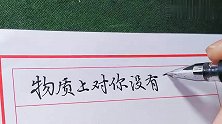 物质上对你没有